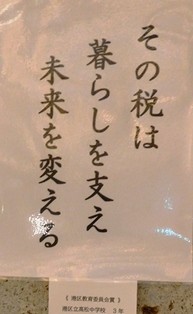 その税は
暮らしを支え
未来を変える
《 港区教育委員会賞 》
港区立高松中学校 3年